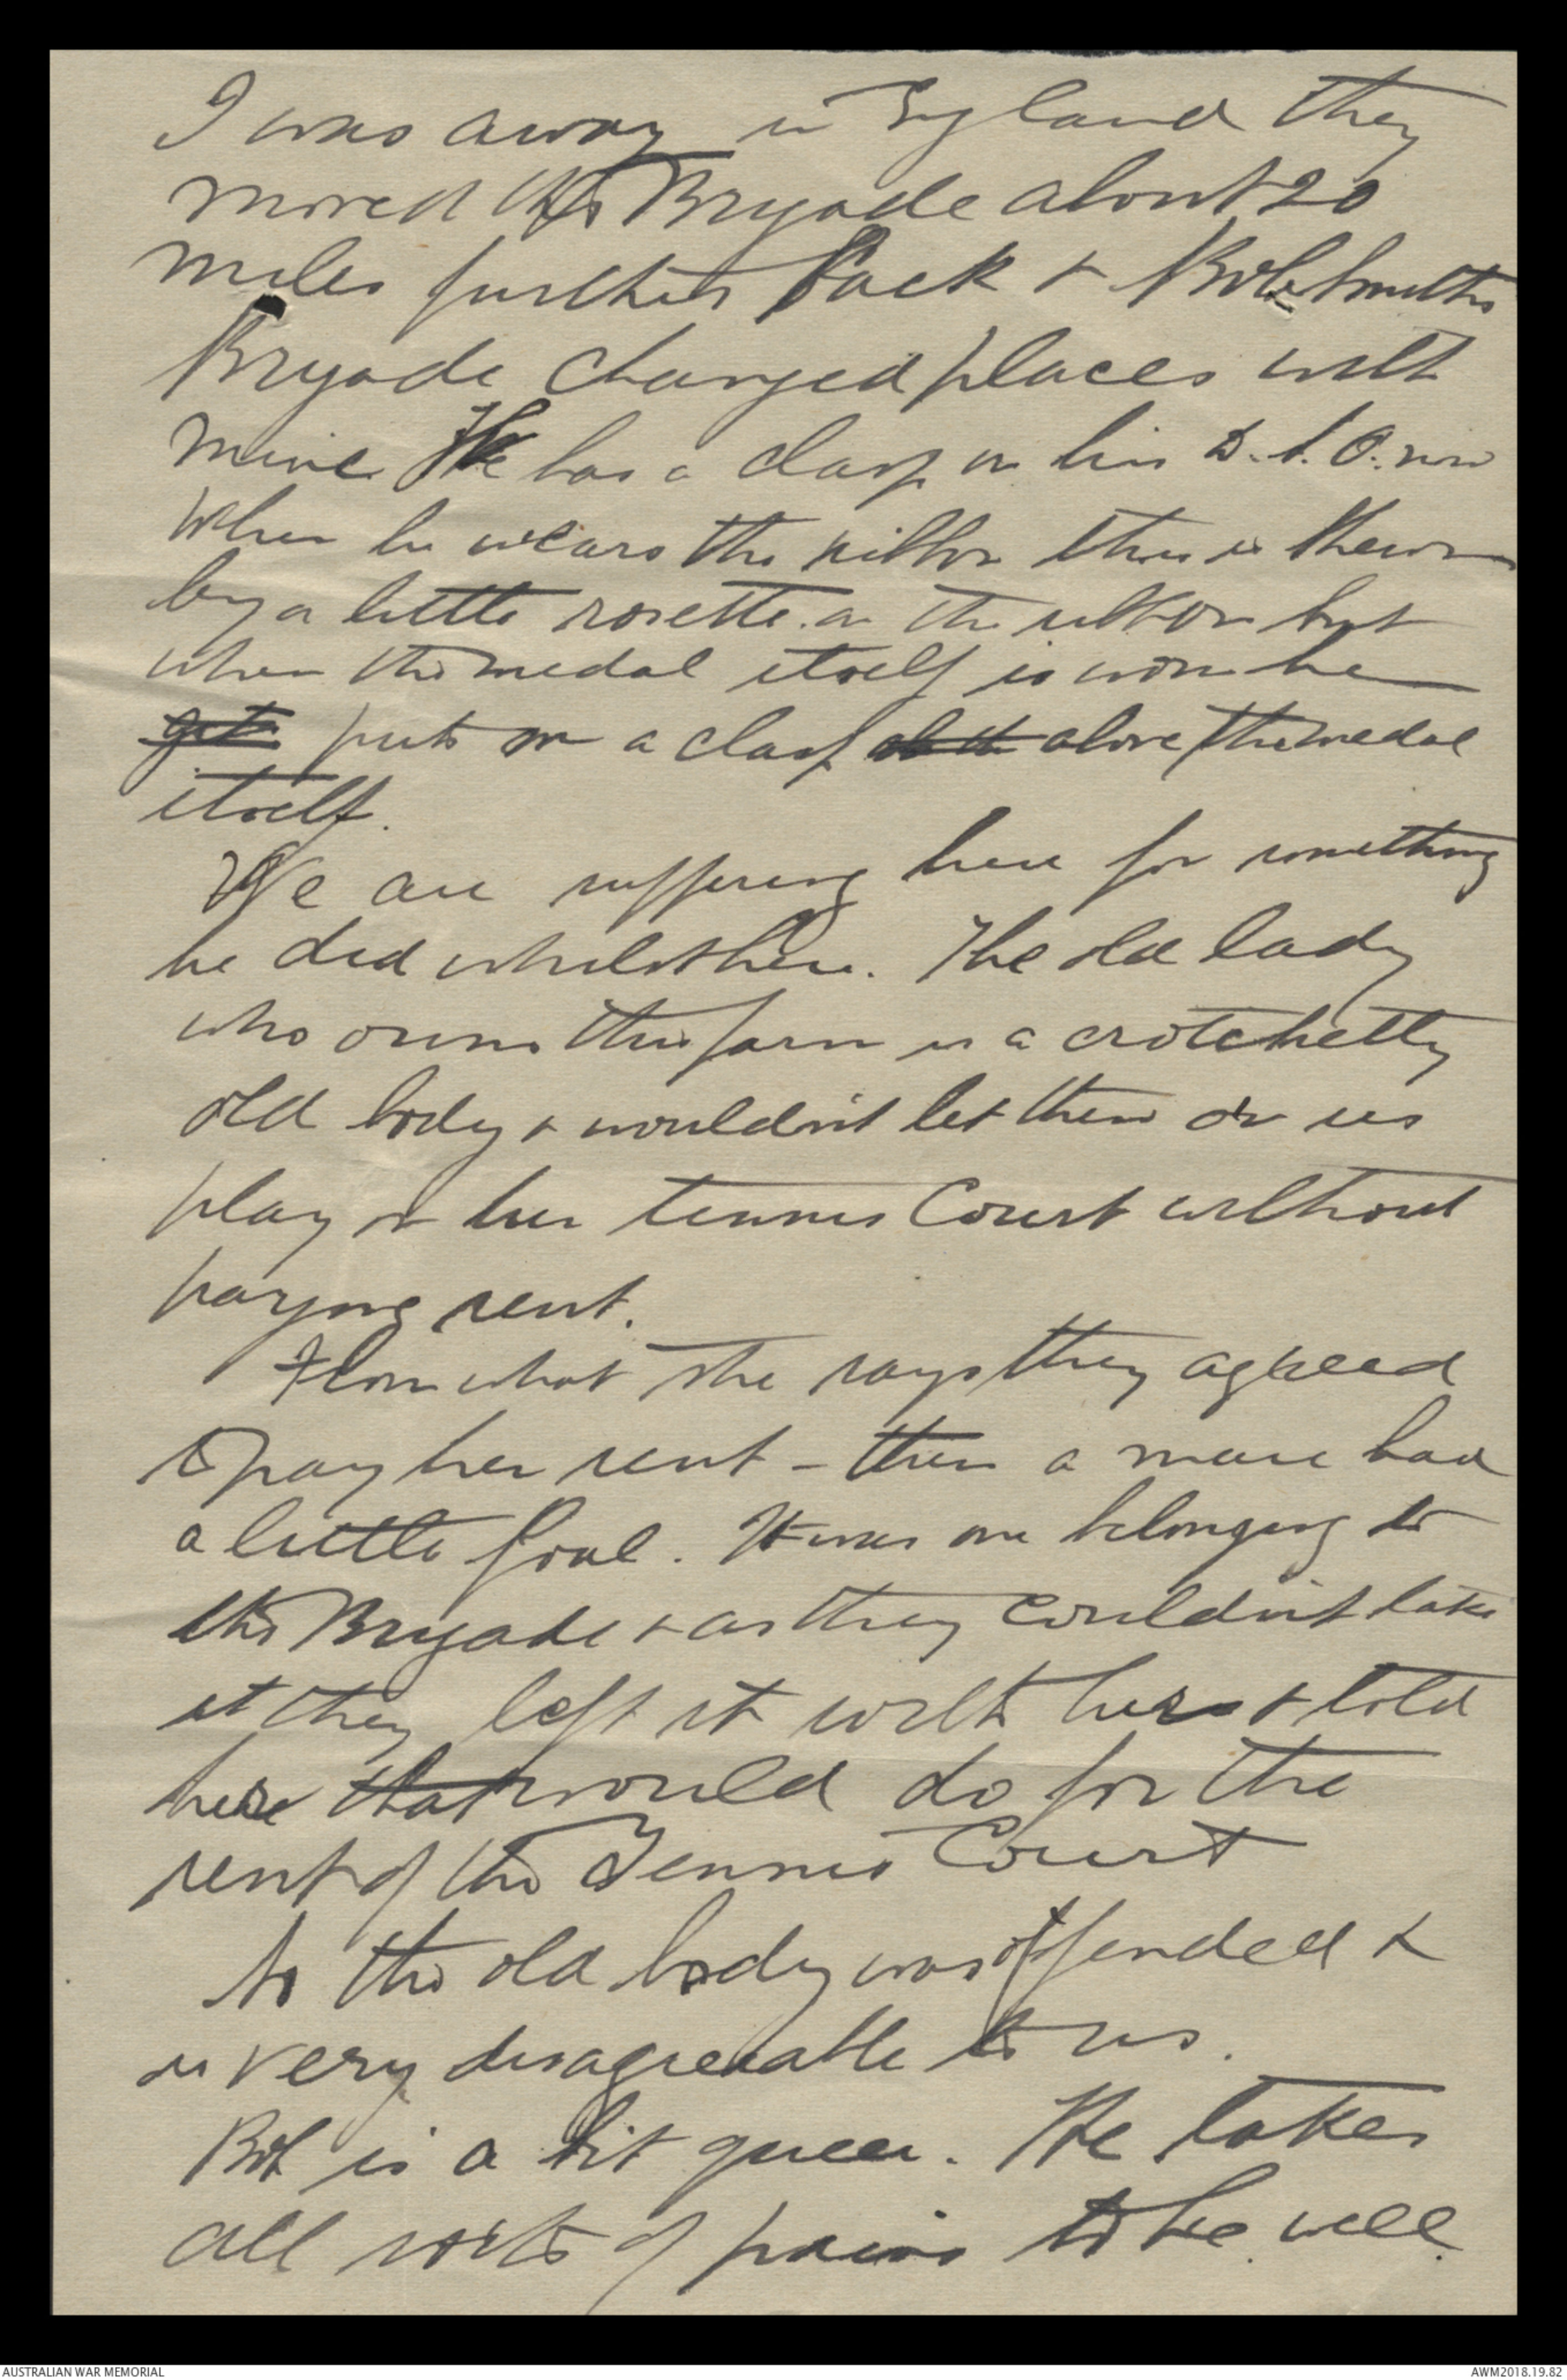 I was away in England they
moved the Brigade about 20
miles further back & Bob Smith's
Brigade changed places with
mine. He has a clasp on his D.S.O. now
When he wears the ribbon this is shewn
by a little rosette on the ribbon but
when the medal itself is worn he
get puts on a clasp above the medal
itself.
We are suffering here for something
he did whilst here. The old lady
who owns this farm is a crotchetty
old body & wouldn't let them or us
play on her tennis Court without
paying rent.
From what she says they agreed
to pay her rent - then a mare had
a little foal. It was one belonging to
the Brigade & as they couldn't take
it they left it with her & told
her that would do for the
rent of the Tennis Court
So the old body was offended &
is very disagreeable to us.
Bob is a bit queer. He takes
all sorts of pains to be well.
AUSTRALIAN WAR MEMORIAL
AWM2018.19.82